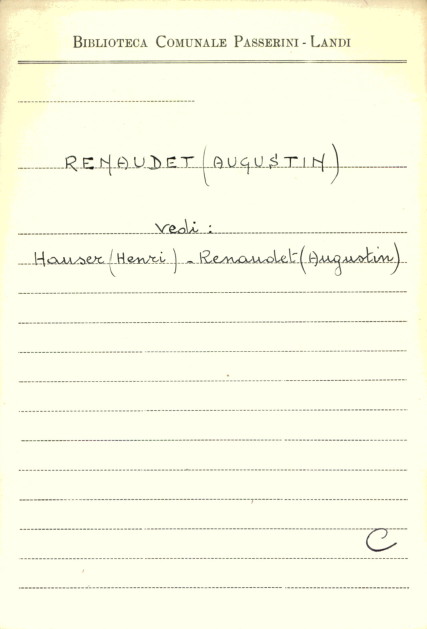 BIBLIOTECA COMUNALE PASSERINI - LANDI
RENAUDET (AUGUSTIN)
vedi :
Hauser (Henri) - Renaudet (Augustin)
C